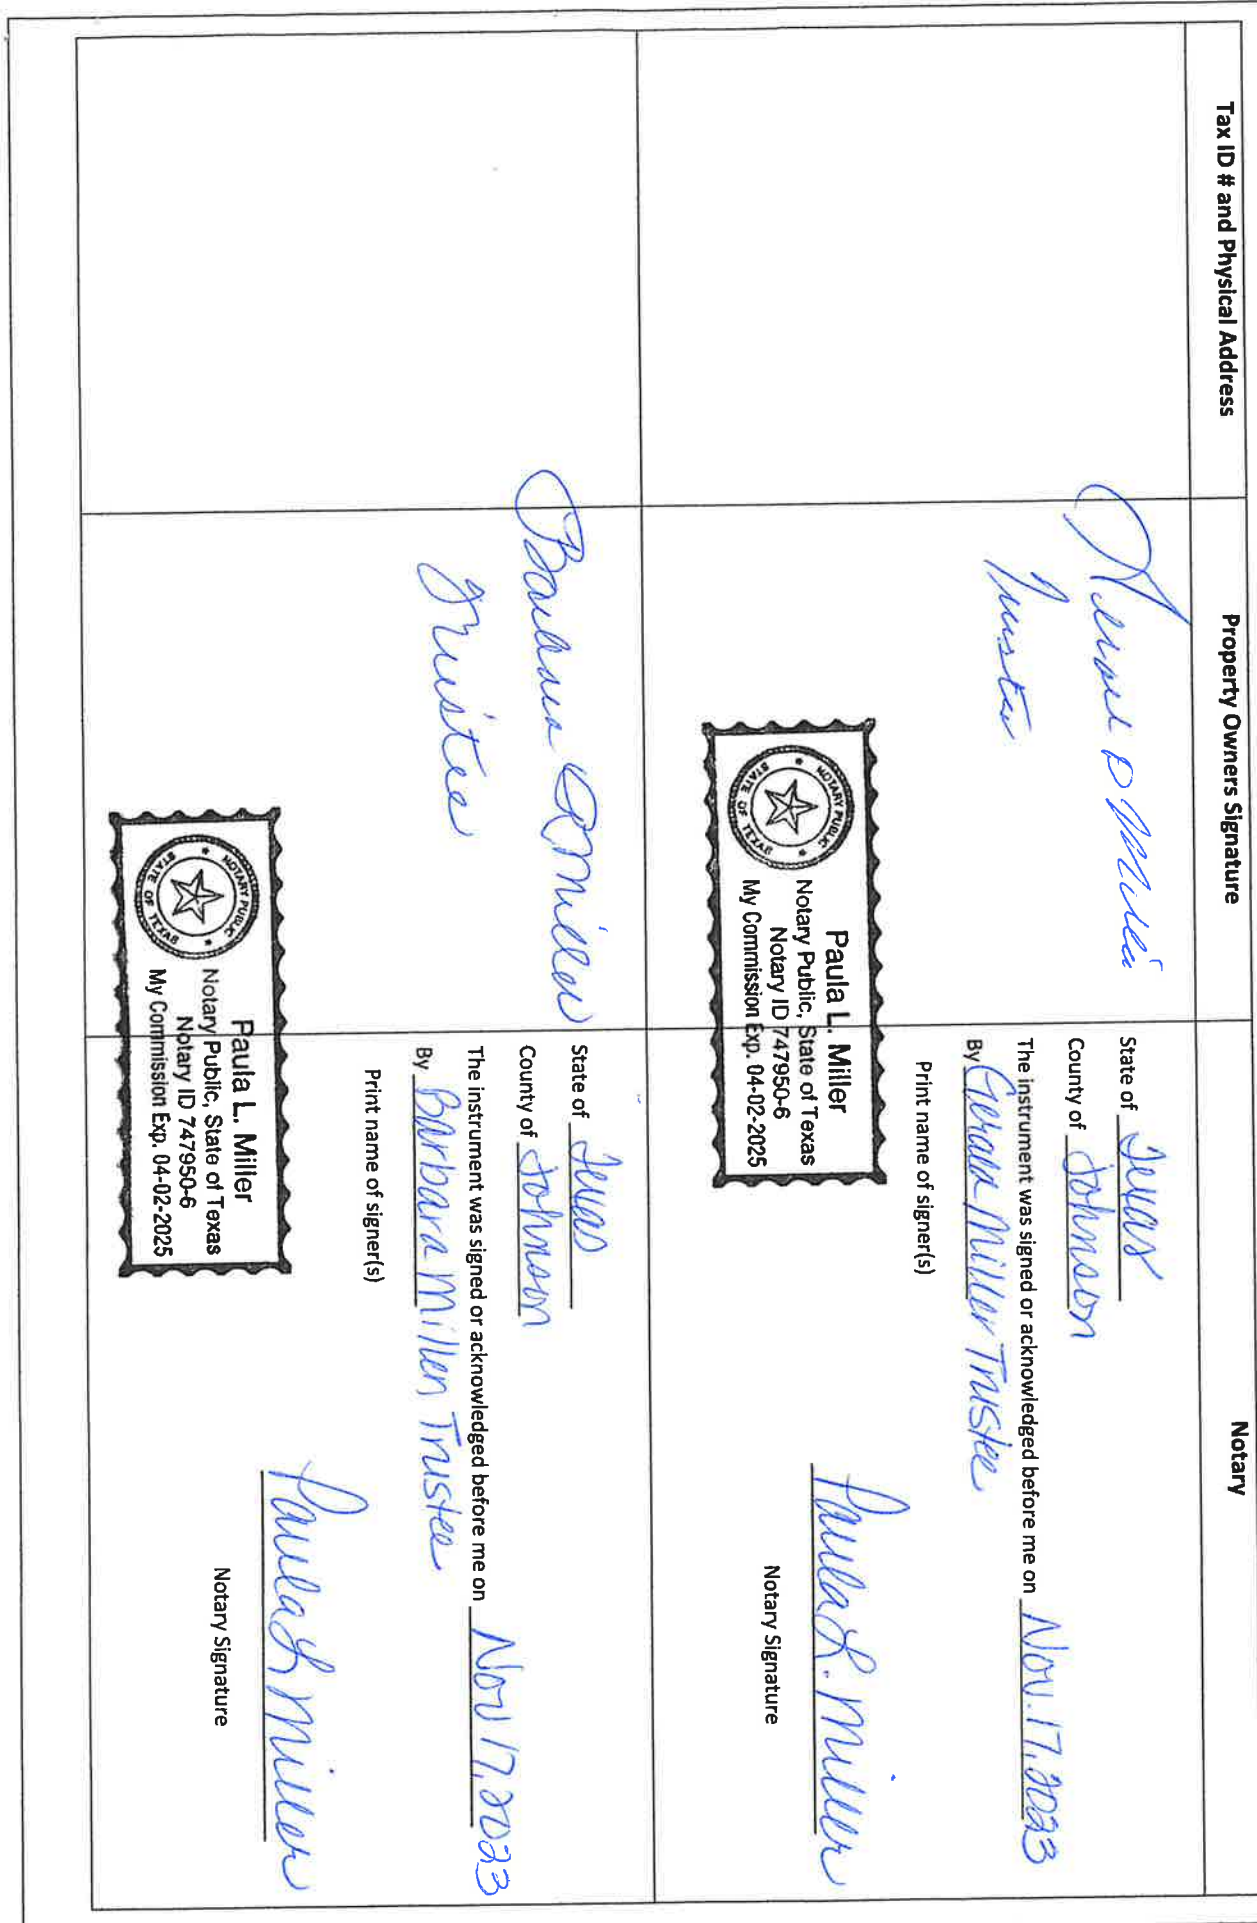 Tax ID # and Physical Address
Property Owners Signature
Notary
Gerald D Miller
Trustee
State of Texas
County of Johnson
The instrument was signed or acknowledged before me on Nov. 17, 2023
By Gerald Miller Trustee
Print name of signer(s)
Paula L. Miller
Notary Signature
NOTARY PUBLIC
STATE OF TEXAS
Paula L. Miller
Notary Public, State of Texas
Notary ID 747950-6
My Commission Exp. 04-02-2025
Barbara R Miller
Trustee
State of Texas
County of Johnson
The instrument was signed or acknowledged before me on Nov 17, 2023
By Barbara Miller Trustee
Print name of signer(s)
Paula L Miller
Notary Signature
NOTARY PUBLIC
STATE OF TEXAS
Paula L. Miller
Notary Public, State of Texas
Notary ID 747950-6
My Commission Exp. 04-02-2025